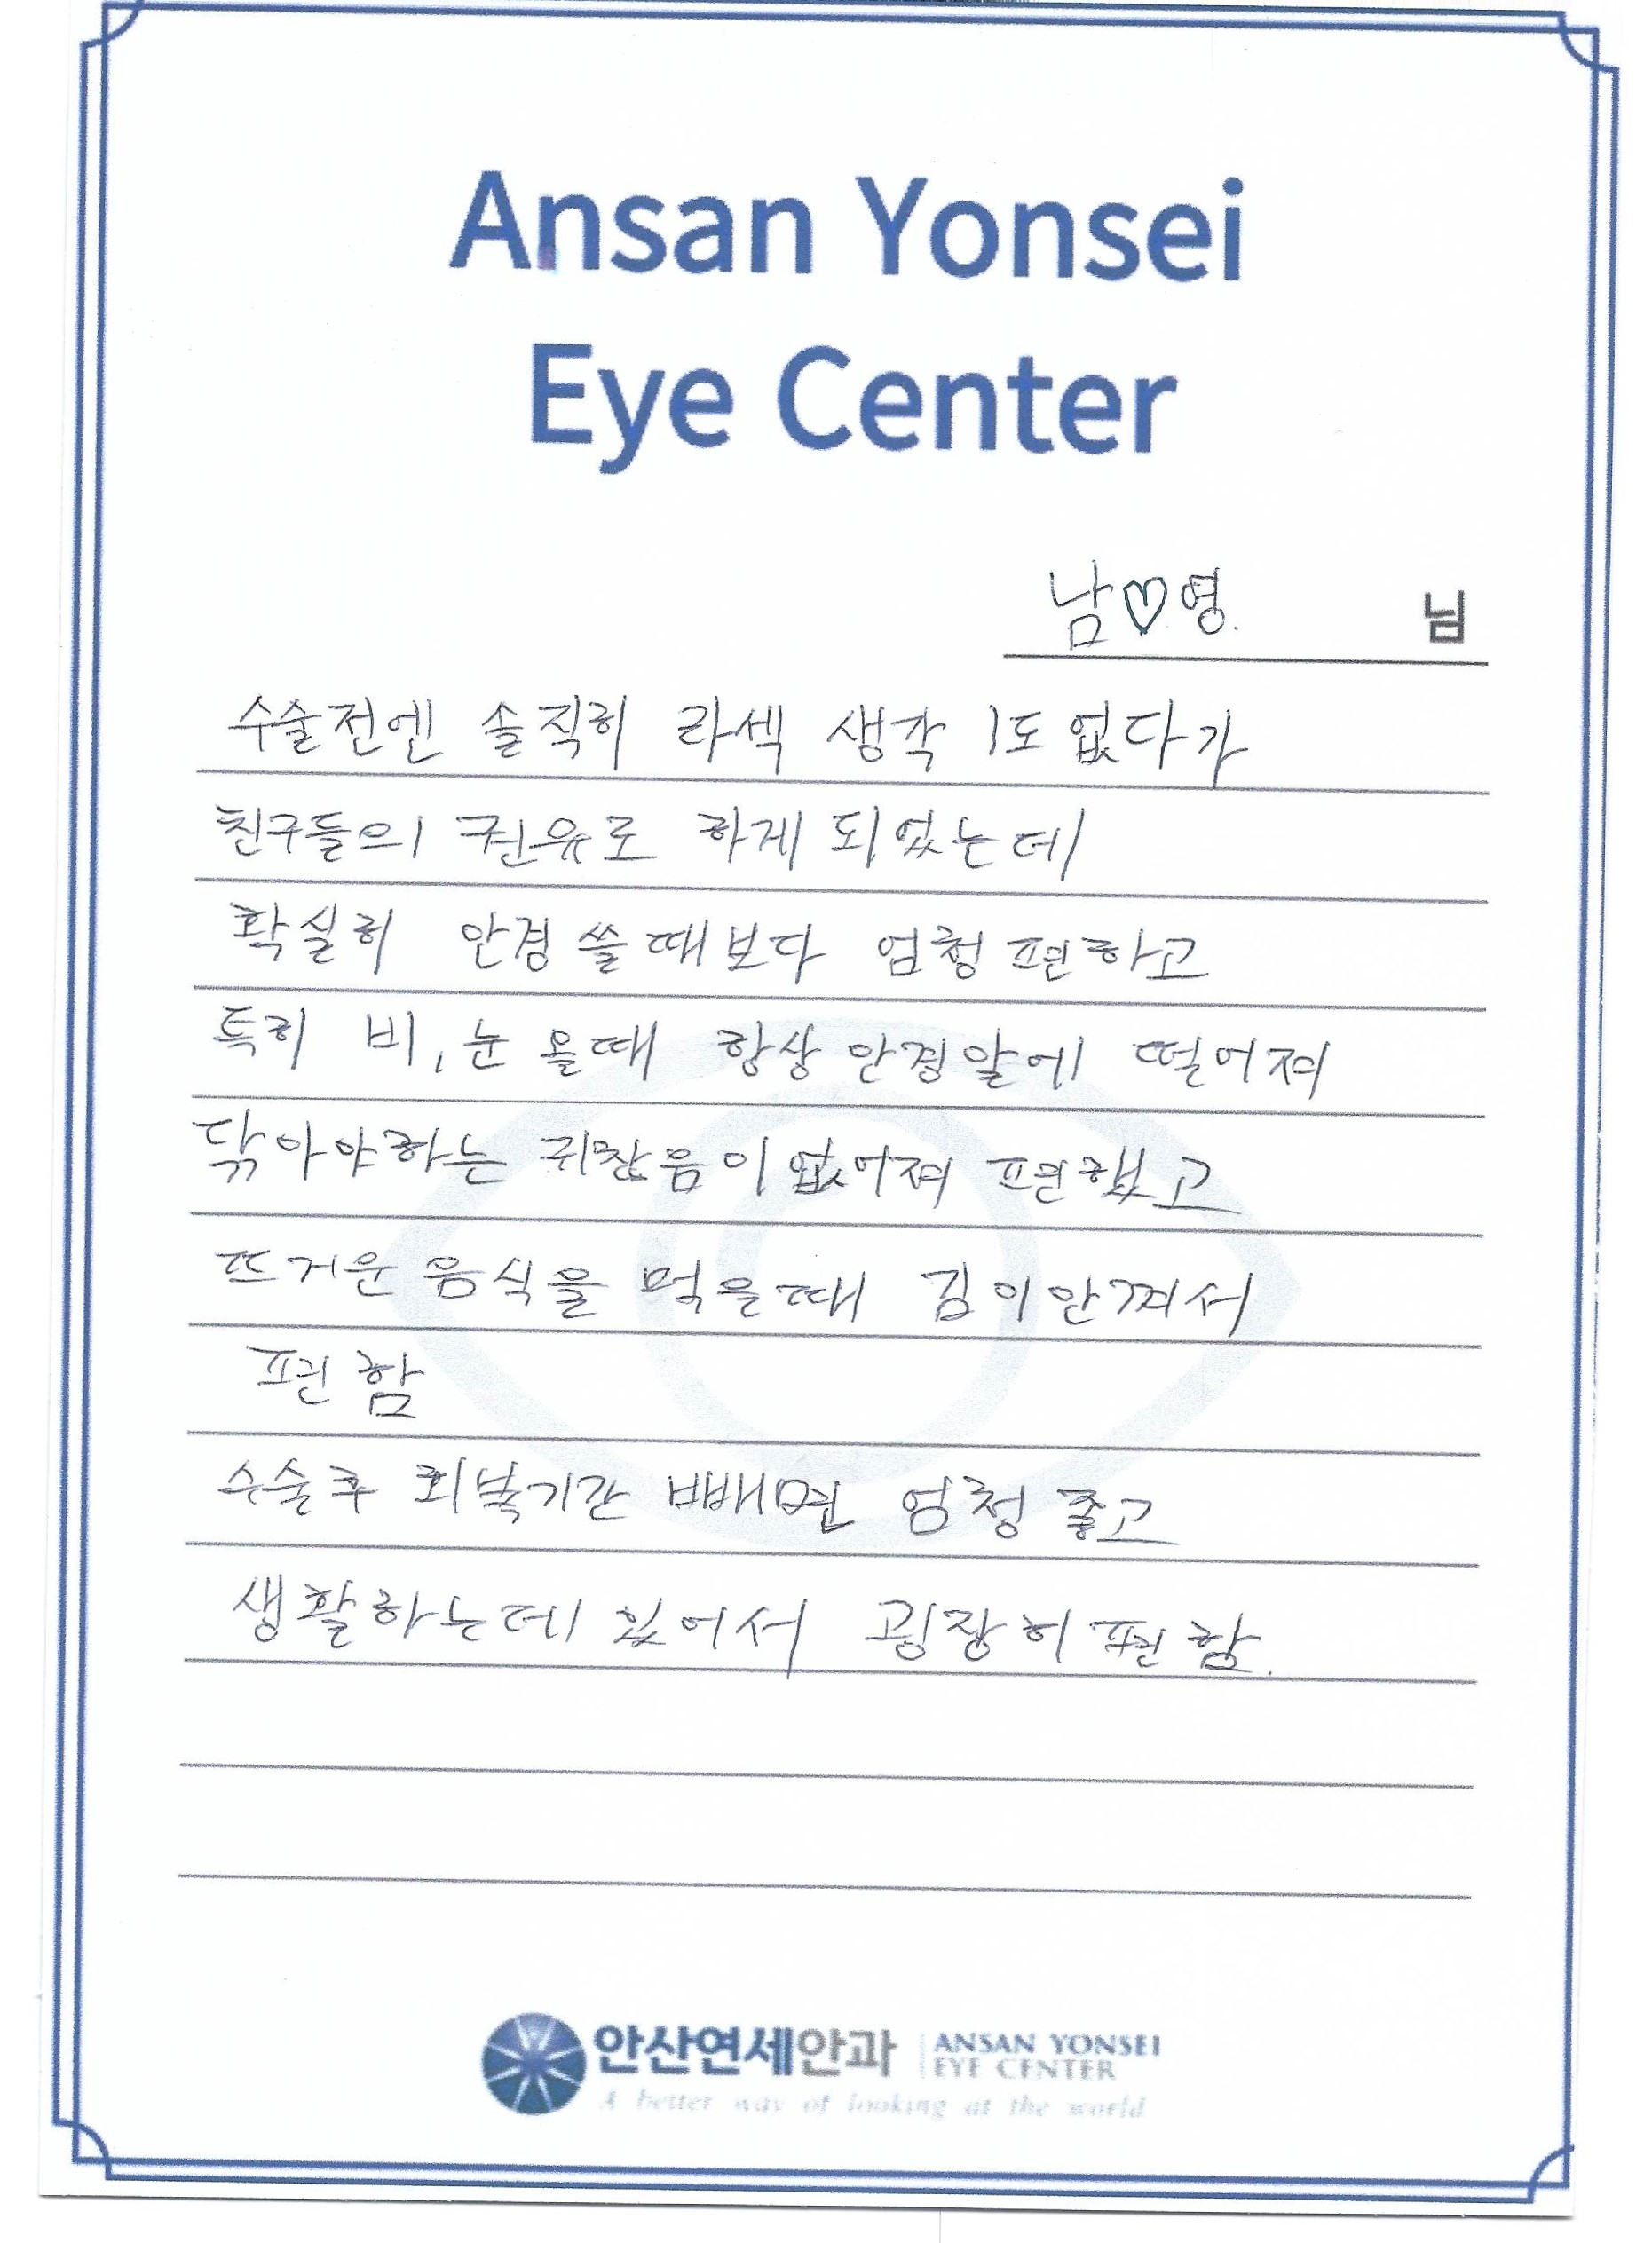 Ansan Yonsei
Eye Center
남♡영. 님
수술전엔 솔직히 라섹 생각 1도 없다가
친구들의 권유로 하게 되었는데
확실히 안경 쓸때보다 엄청 편하고
특히 비, 눈 올때 항상 안경알에 떨어져
닦아야하는 귀찮음이 없어져 편했고
뜨거운 음식을 먹을때 김이안껴서
편함
수술후 회복기간 빼면 엄청 좋고
생활하는데 있어서 굉장히 편함.
안산연세안과 ANSAN YONSEI
EYE CENTER
A better way of looking at the world